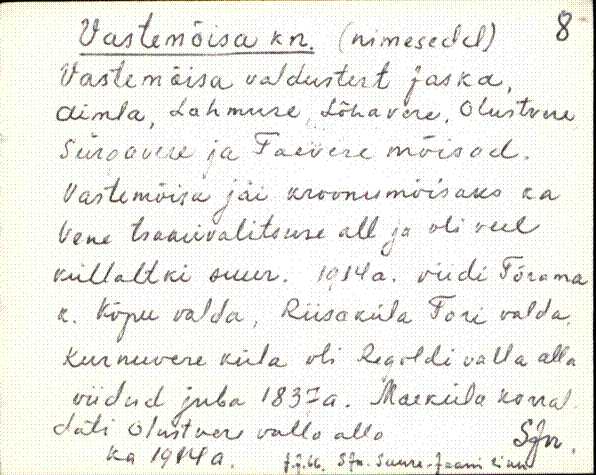 8
Vastemõisa kn. (nimesedel)
Vastemõisa valdustest Jaska,
Aimla, Lahmuse, Lõhavere, Olustvere
Sürgavere ja Taevere mõisad.
Vastemõisa jäi kroonumõisaks ka
Vene tsaarivalitsuse all ja oli veel
küllaltki suur. 1914 a. viidi Tõrama
k. Kõpu valda, Riisaküla Tori valda,
Kurnuvere küla oli Regoldi valla alla
viidud juba 1837 a. Maeküla korral-
dati Olustvere valla alla
ka 1914 a. Sjn.
Sjn. Suure-Jaani